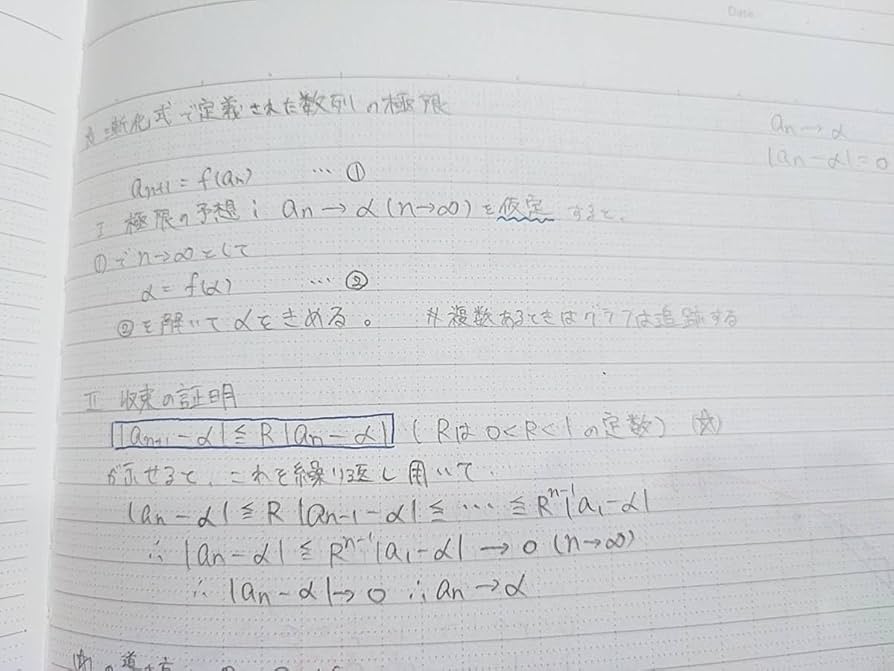 Date
☆ 漸化式で定義された数列の極限
an→α
|an-α|=0
an+1 = f(an) … ①
I 極限の予想； an→α(n→∞)を仮定すると、
①でn→∞として
α = f(α) … ②
②を解いてαをきめる。 #複数あるときはグラフは追跡する
II 収束の証明
|an+1-α|≦R|an-α| (Rは0<R<1の定数) (☆)
が示せると、これを繰り返し用いて、
|an-α|≦R|an-1-α|≦…≦R^n-1|a1-α|
∴ |an-α|≦R^n-1|a1-α|→0(n→∞)
∴ |an-α|→0 ∴an→α